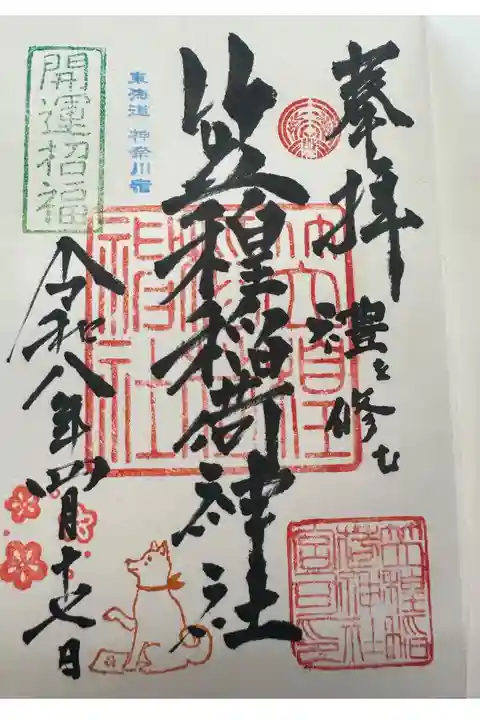 奉拝
禮を修む
笠䅣稲荷神社
東海道 神奈川宿
開運招福
令和八年四月十七日